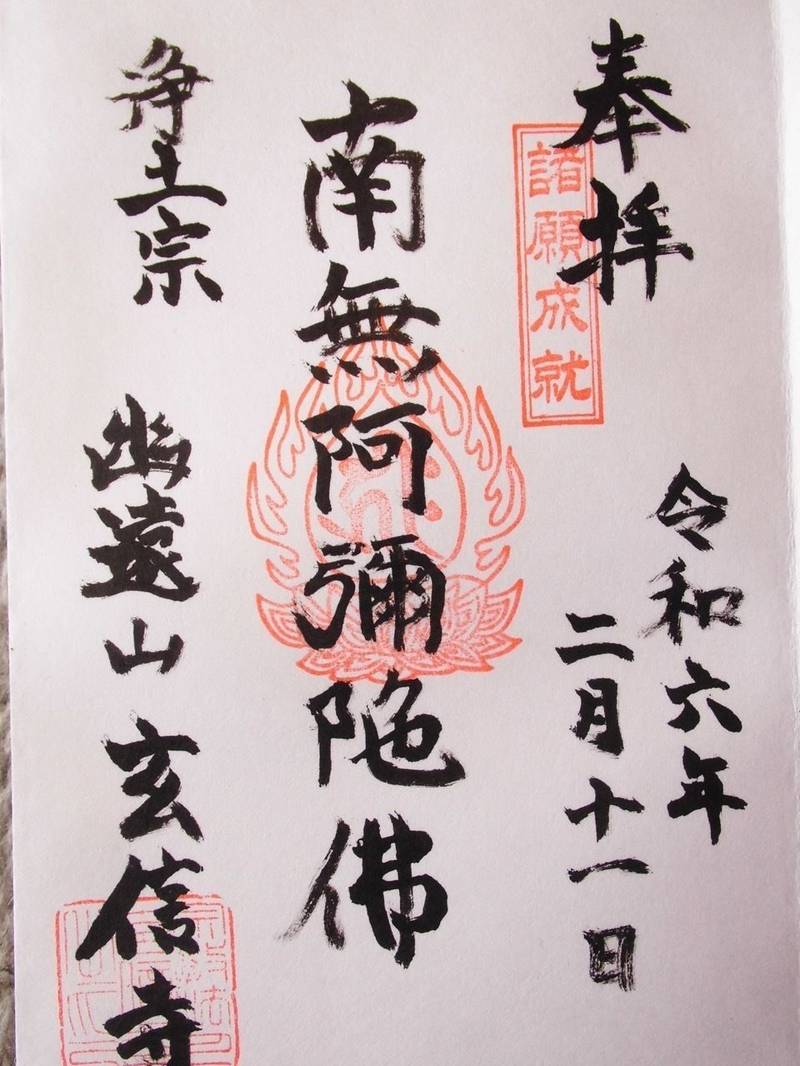 奉拝
諸願成就
令和六年
二月十一日
南無阿彌陀佛
浄土宗
幽遠山
玄信寺